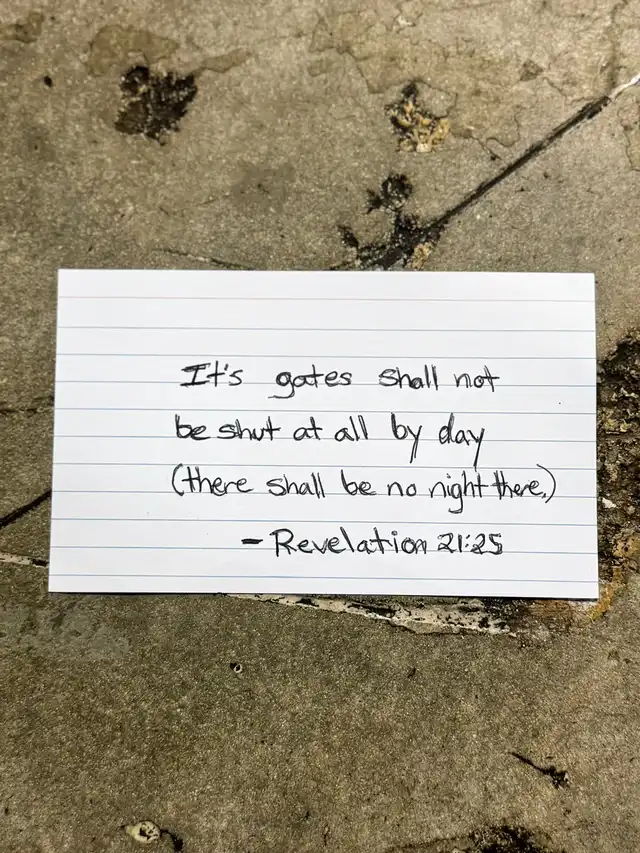 It's gates shall not
be shut at all by day
(there shall be no night there.)
- Revelation 21:25